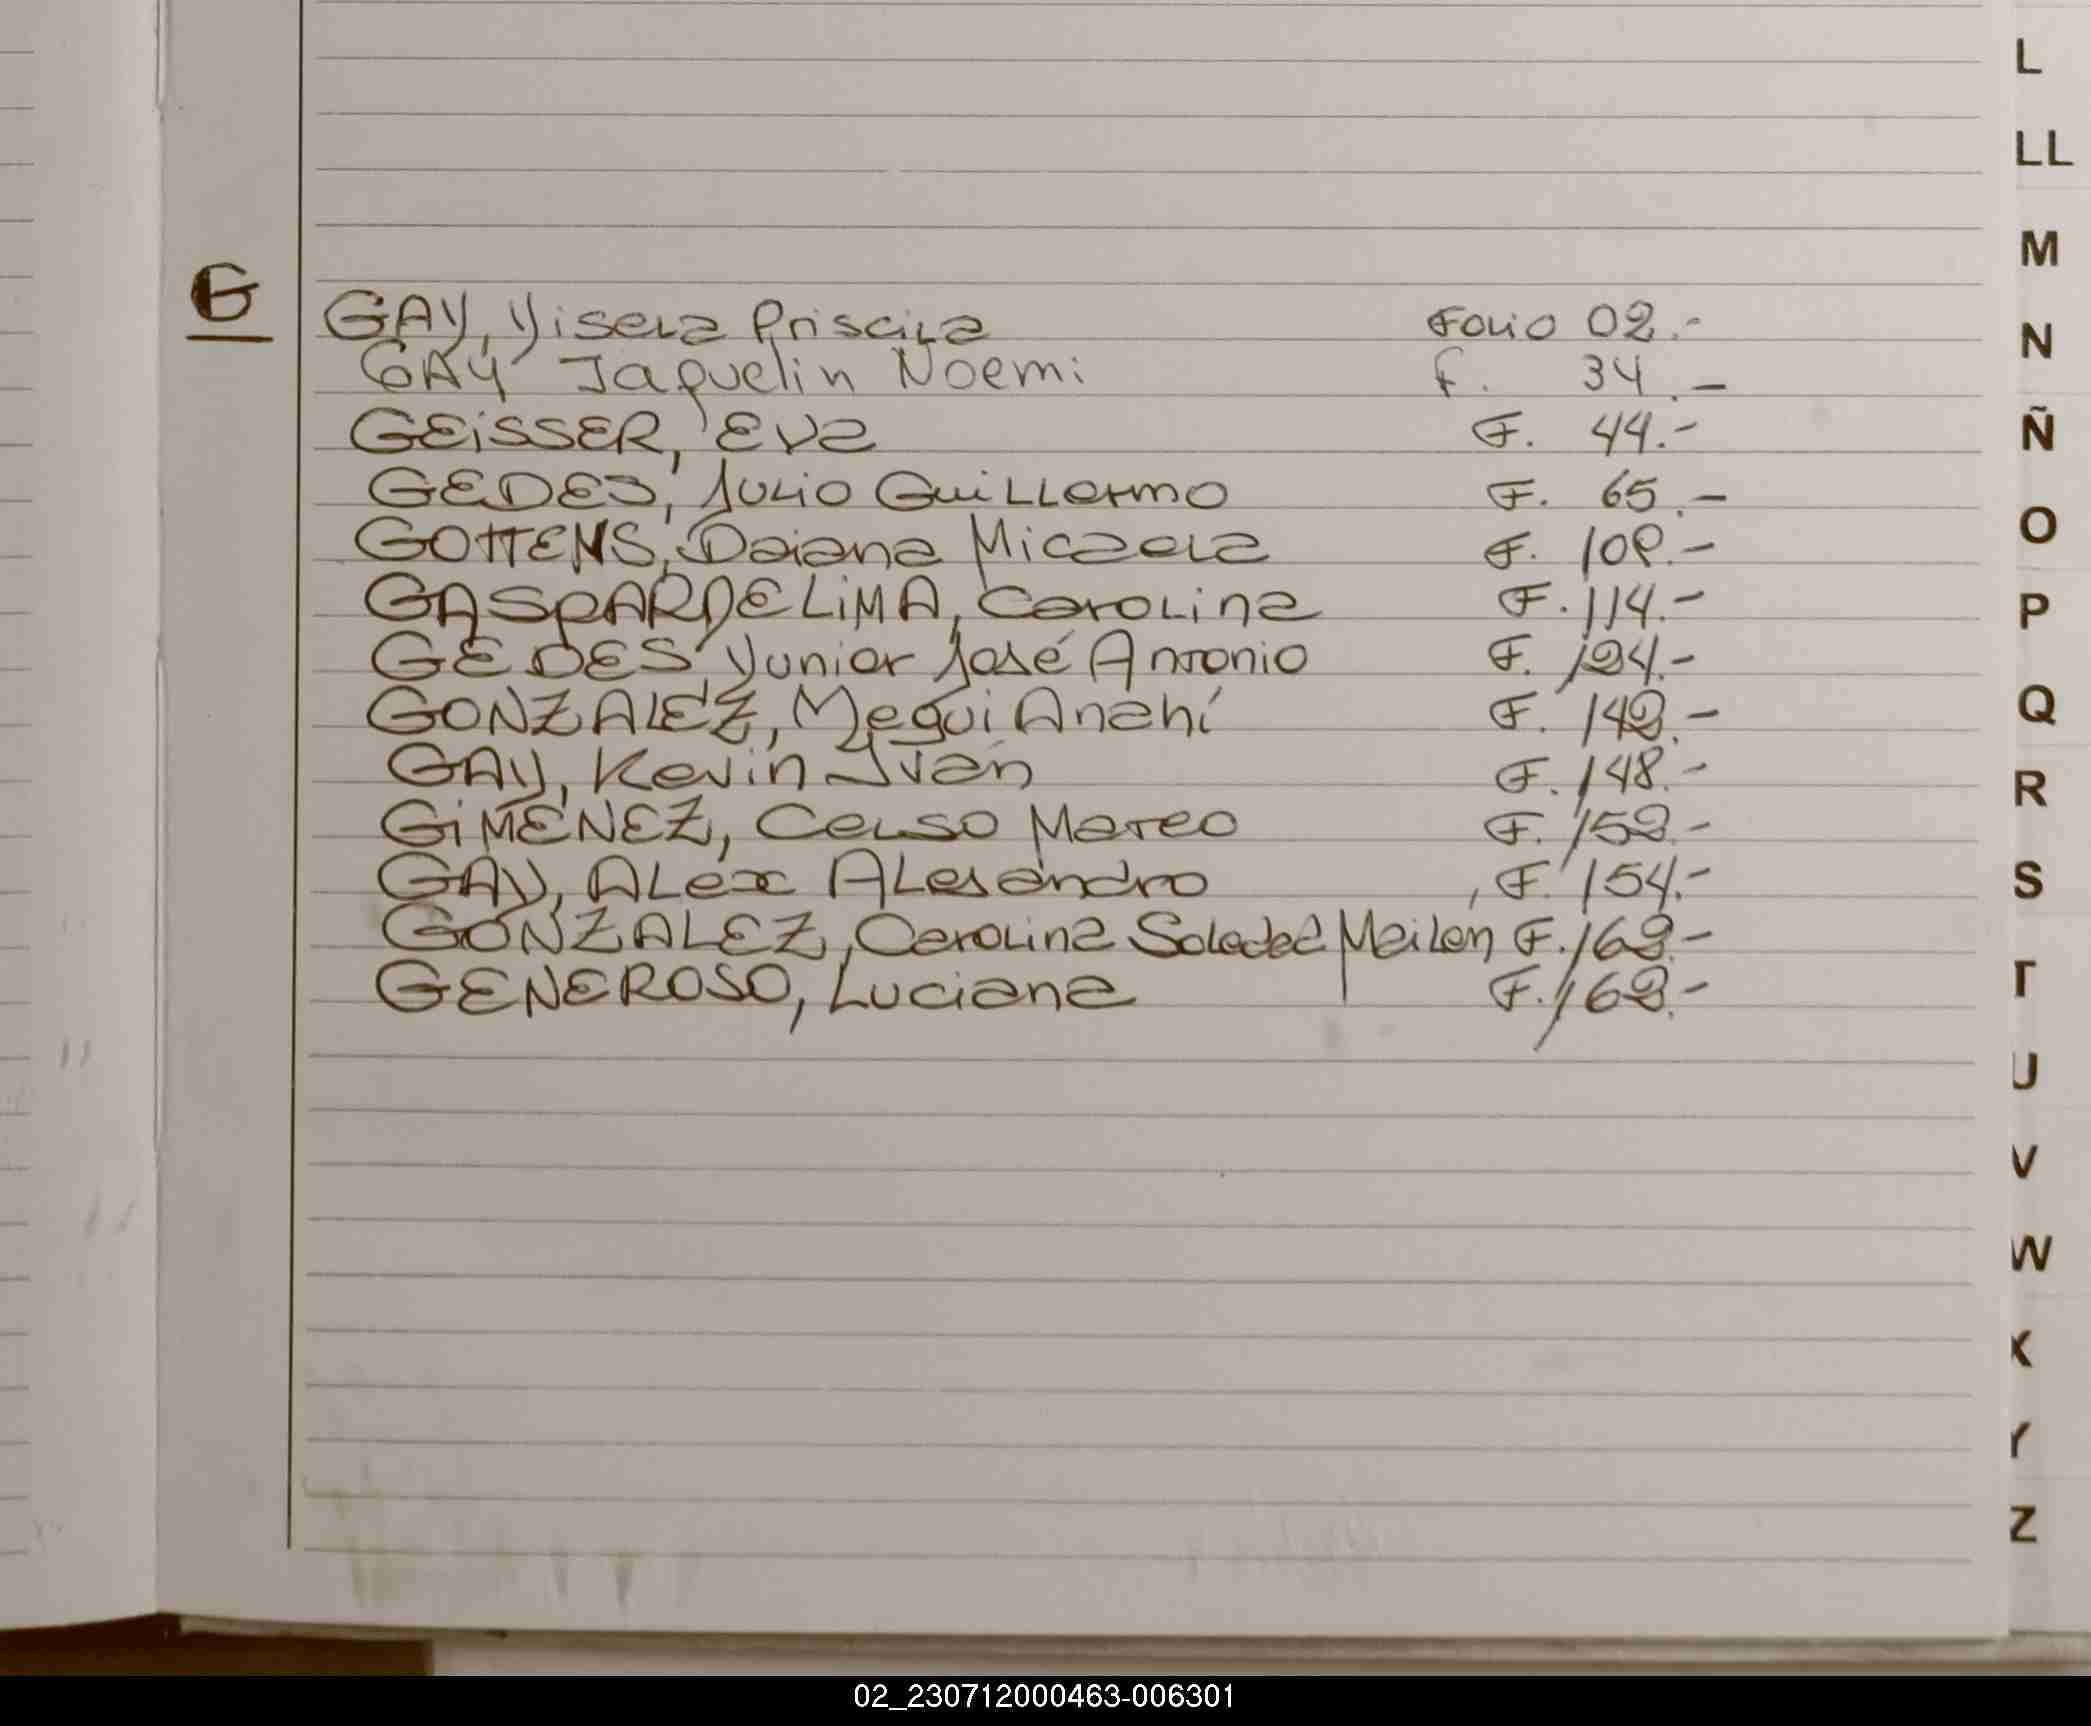 G
GAY, Yisela Priscila Folio 02.-
GAY Jaquelin Noemi F. 34.-
GEiSSER, Eva F. 44.-
GEDES, Julio Guillermo F. 65.-
GOTTENS, Daiana Micaela F. 10
GASPARDELiMA, Carolina F. 114.-
GEDES, Yunior José Antonio F. 124.-
GONZALEZ, Megui Anahí F. 142.-
GAY, Kevin Iván F. 148.-
GiMENEZ, Celso Mateo F. 152.-
GAY, Alex Alesandro F. 154.-
GONZALEZ, Carolina Soledad Mailen F. 162.-
GENEROSO, Luciana F. 162.-
L
LL
M
N
Ñ
O
P
Q
R
S
T
U
V
W
X
Y
Z
02_230712000463-006301